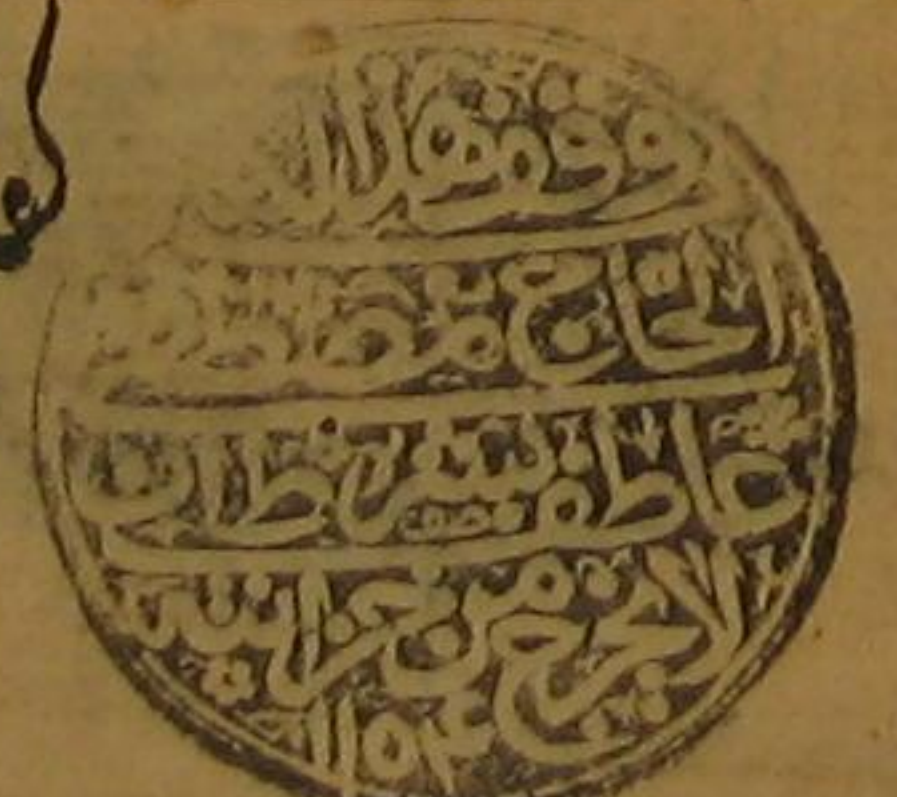 وقف هذا
الحاج مصطفى
عاطف بشرط ان
لا يخرج من خزانته
١١٥٤